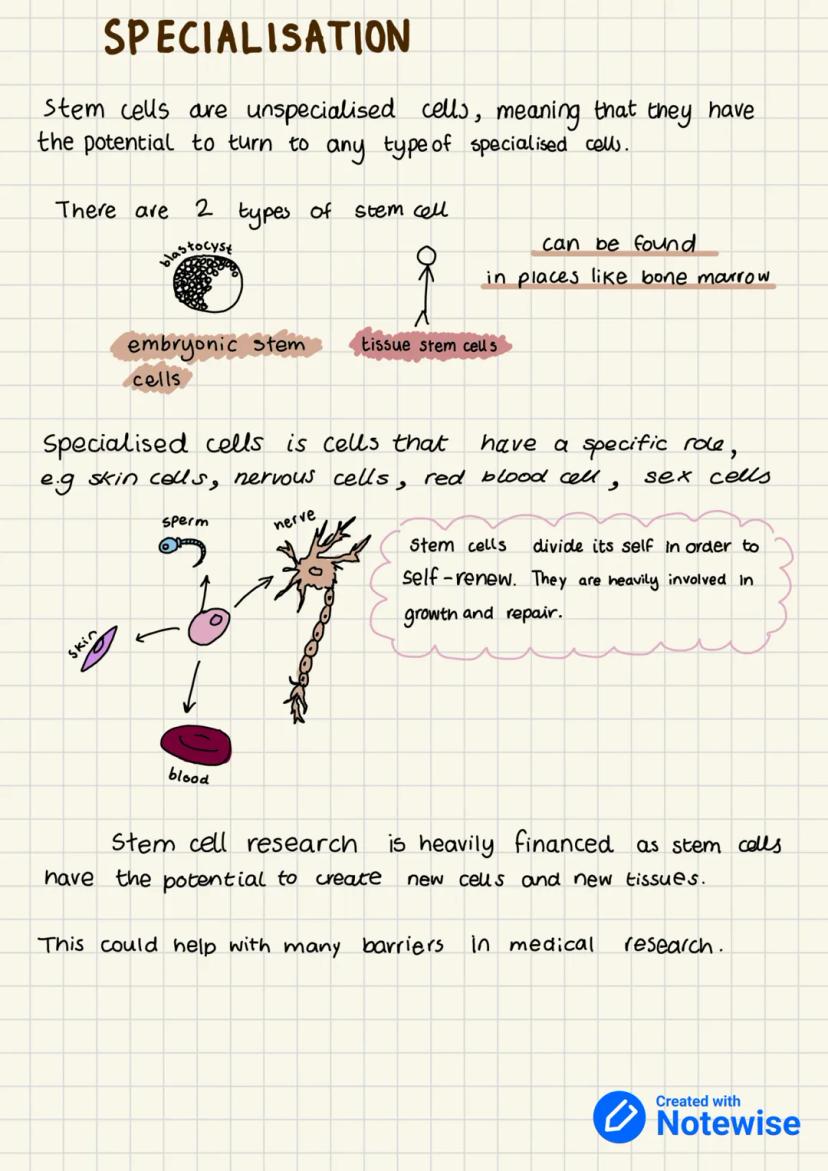 SPECIALISATION
Stem cells are unspecialised cells, meaning that they have
the potential to turn to any type of specialised cells.
There are 2 types of stem cell
blastocyst
can be found
in places like bone marrow
embryonic stem
cells
tissue stem cells
Specialised cells is cells that have a specific role,
e.g skin cells, nervous cells, red blood cell, sex cells
sperm
nerve
stem cells divide its self in order to
self-renew. They are heavily involved in
growth and repair.
skin
blood
Stem cell research is heavily financed as stem cells
have the potential to create new cells and new tissues.
This could help with many barriers in medical research.
Created with
Notewise